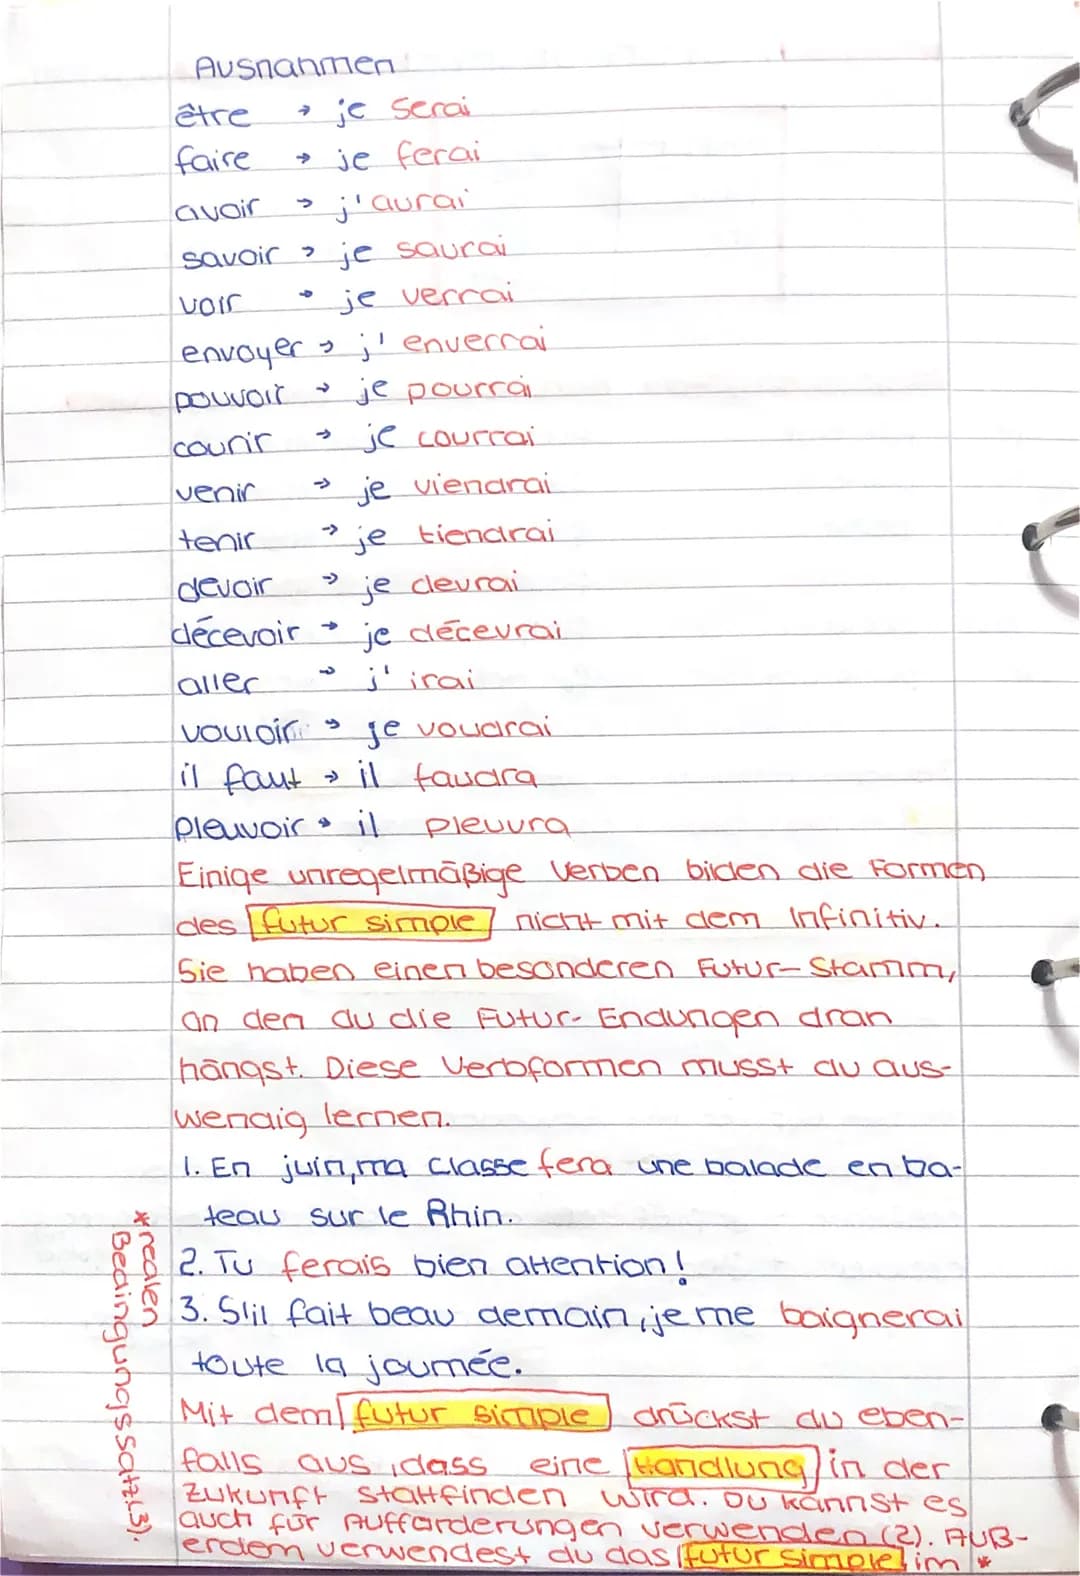 Ausnahmen
être → je serai
faire → je ferai
avoir → j'aurai
savoir → je saurai
voir → je verrai
envoyer → j'enverrai
pouvoir → je pourrai
courir → je courrai
venir → je viendrai
tenir → je tiendrai
devoir → je devrai
décevoir → je décevrai
aller → j'irai
vouloir → je voudrai
il faut → il faudra
pleuvoir → il pleuvra
Einige unregelmäßige Verben bilden die Formen
des futur simple nicht mit dem Infinitiv.
Sie haben einen besonderen Futur-Stamm,
an den du die Futur-Endungen dran
hängst. Diese Verbformen musst du aus-
wendig lernen.
1. En juin, ma classe fera une balade en ba-
teau sur le Rhin.
2. Tu ferais bien attention!
3. S'il fait beau demain, je me baignerai
toute la journée.
Mit dem futur simple drückst du eben-
falls aus, dass eine Handlung in der
Zukunft stattfinden wird. Du kannst es
auch für Aufforderungen verwenden (2). Auß-
erdem verwendest du das futur simple im *
*realen
Bedingungssatz(3).